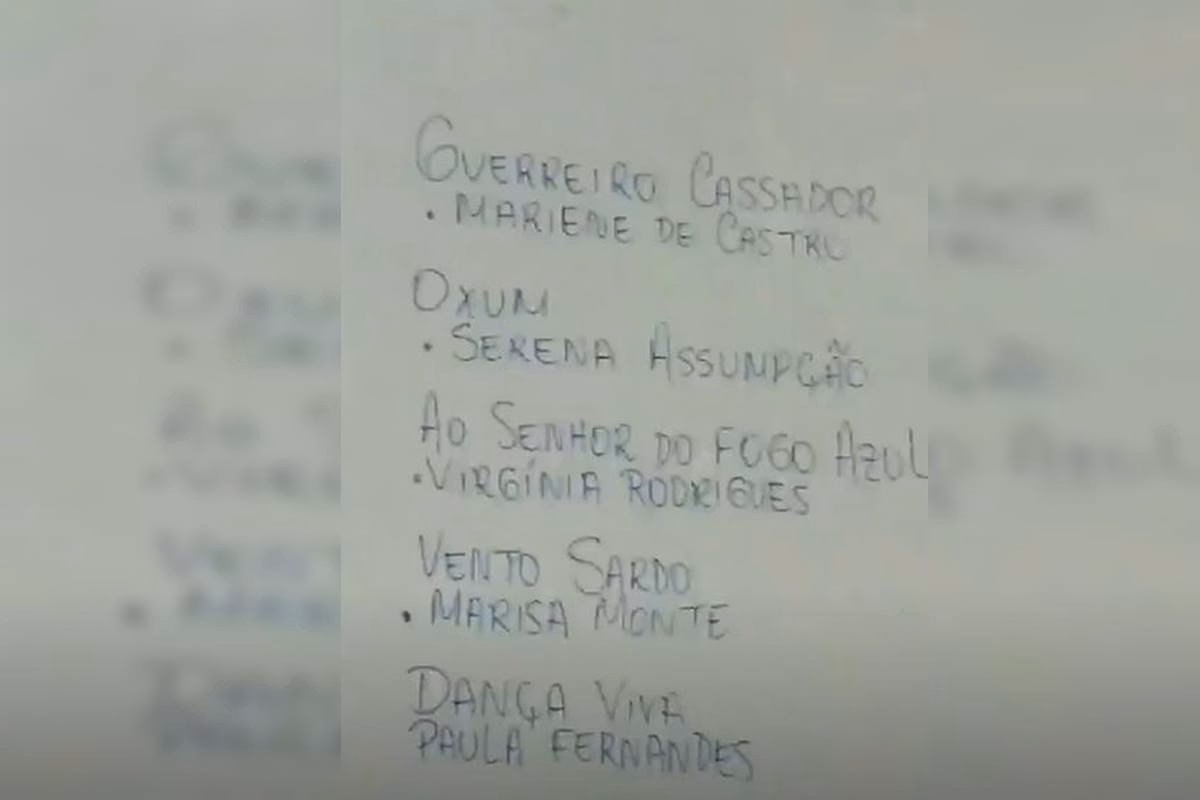 GUERREIRO CASSADOR
• MARIENE DE CASTRO
OXUM
• SERENA ASSUMPÇÃO
AO SENHOR DO FOGO AZUL
• VIRGÍNIA RODRIGUES
VENTO SARDO
• MARISA MONTE
DANÇA VIVA
PAULA FERNANDES